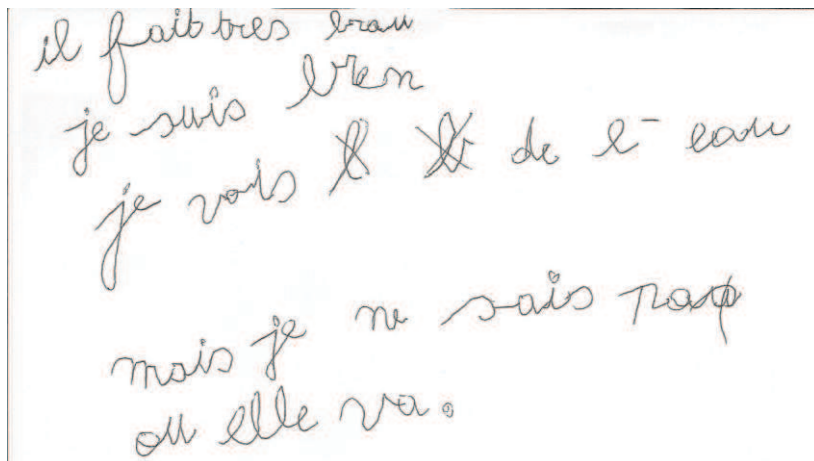 il fait tres beau
je suis bien
je vois de l'eau
mais je ne sais pas
ou elle va.